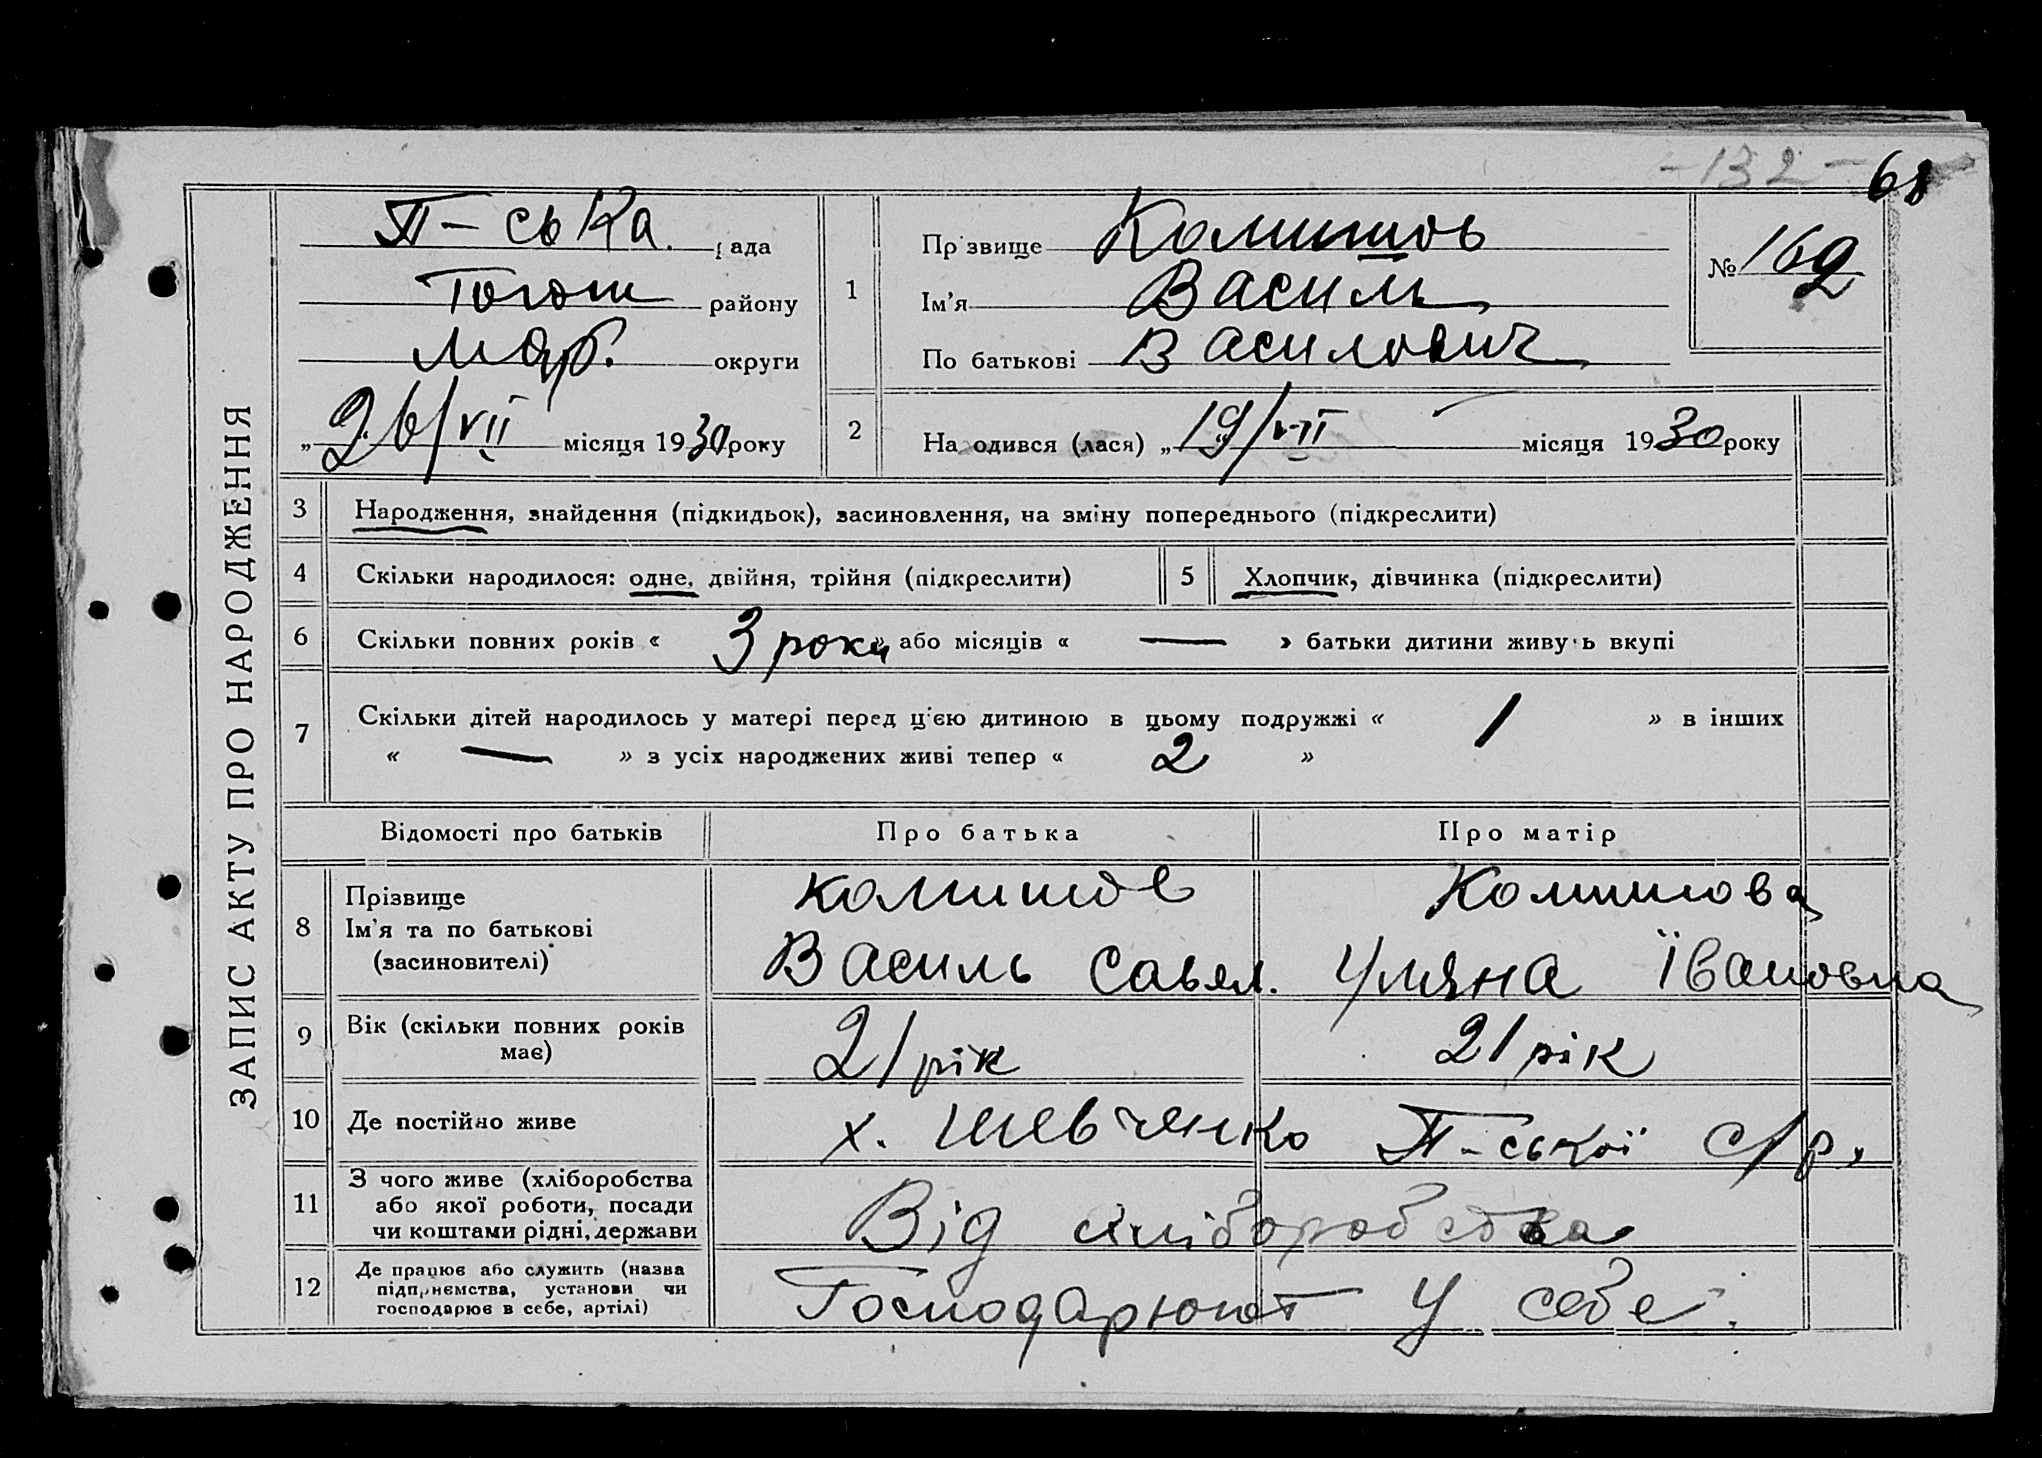 - 132 -
68
П-ська рада
району
Мар. округи
„26/VII місяця 1930 року
1
Прізвище Колишов
Ім'я Василь
По батькові Василович
№ 162
2
На одився (лася) „19/VII місяця 1930 року
ЗАПИС АКТУ ПРО НАРОДЖЕННЯ
3 Народження, знайдення (підкидьок), засиновлення, на зміну попереднього (підкреслити)
4 Скільки народилося: одне, двійня, трійня (підкреслити)
5 Хлопчик, дівчинка (підкреслити)
6 Скільки повних років « 3 роки » або місяців « — » батьки дитини живуть вкупі
7 Скільки дітей народилось у матері перед цією дитиною в цьому подружжі « 1 » в інших
« — » з усіх народжених живі тепер « 2 »
Відомості про батьків Про батька Про матір
8 Прізвище
Ім'я та по батькові
(засиновителі)
Колишов
Василь Савел.
Колишова
Уляна Ївановна
9 Вік (скільки повних років
має)
21 рік 21 рік
10 Де постійно живе х. Шевченко П-ської с/р.
11 З чого живе (хліборобства
або якої роботи, посади
чи коштами рідні, держави
Від хліборобства
12 Де працює або служить (назва
підприємства, установи чи
господарює в себе, артілі)
Господарюют у себе.